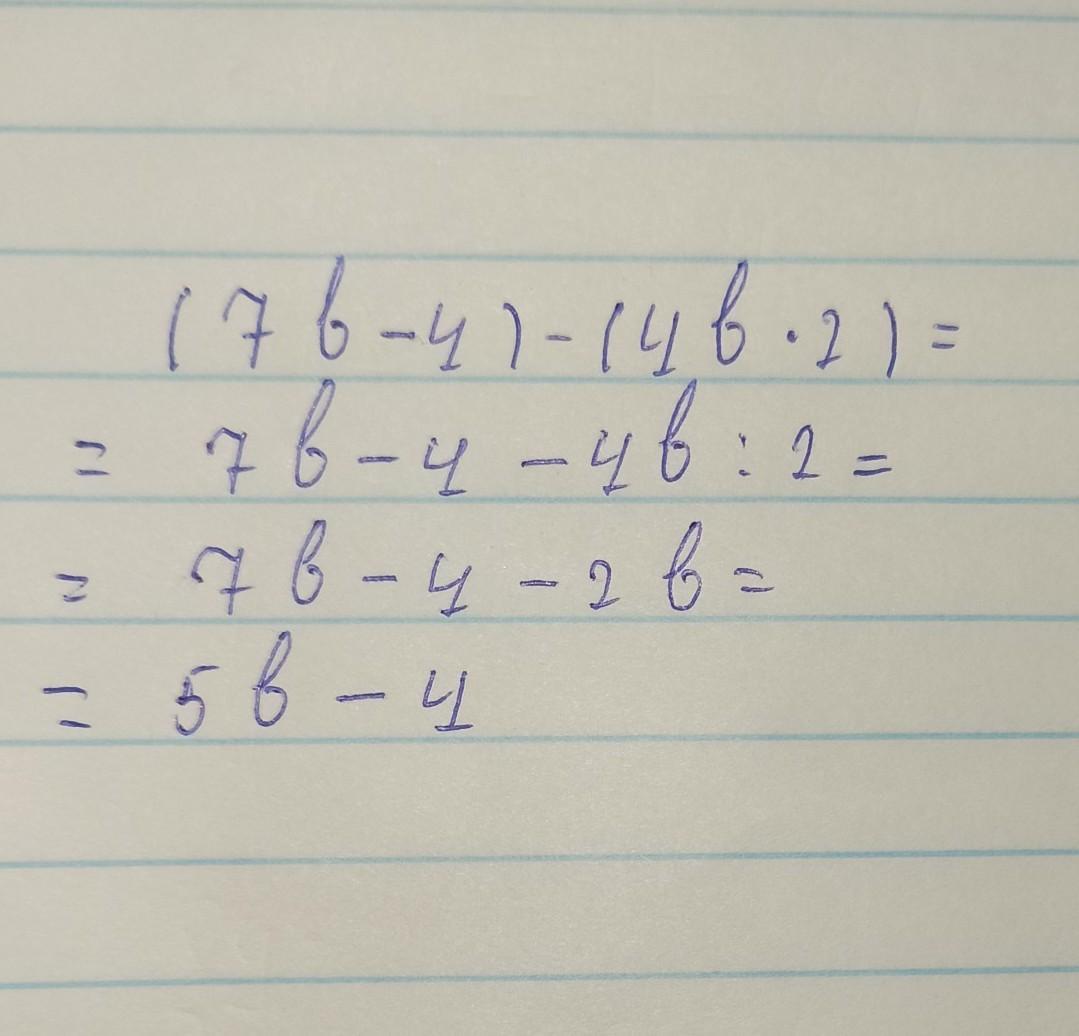 (7b-4)-(4b·2)=
= 7b-4-4b:2=
= 7b-4-2b=
= 5b-4